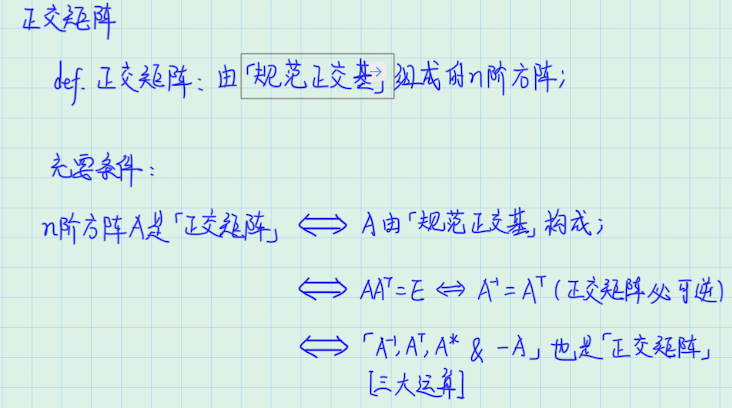 正交矩阵
def. 正交矩阵：由「规范正交基」组成的n阶方阵；
充要条件：
n阶方阵A是「正交矩阵」 ⟺ A由「规范正交基」构成；
⟺ AAᵀ=E ⟺ A⁻¹=Aᵀ (正交矩阵必可逆)
⟺ 「A⁻¹, Aᵀ, A* & -A」也是「正交矩阵」
[三大运算]